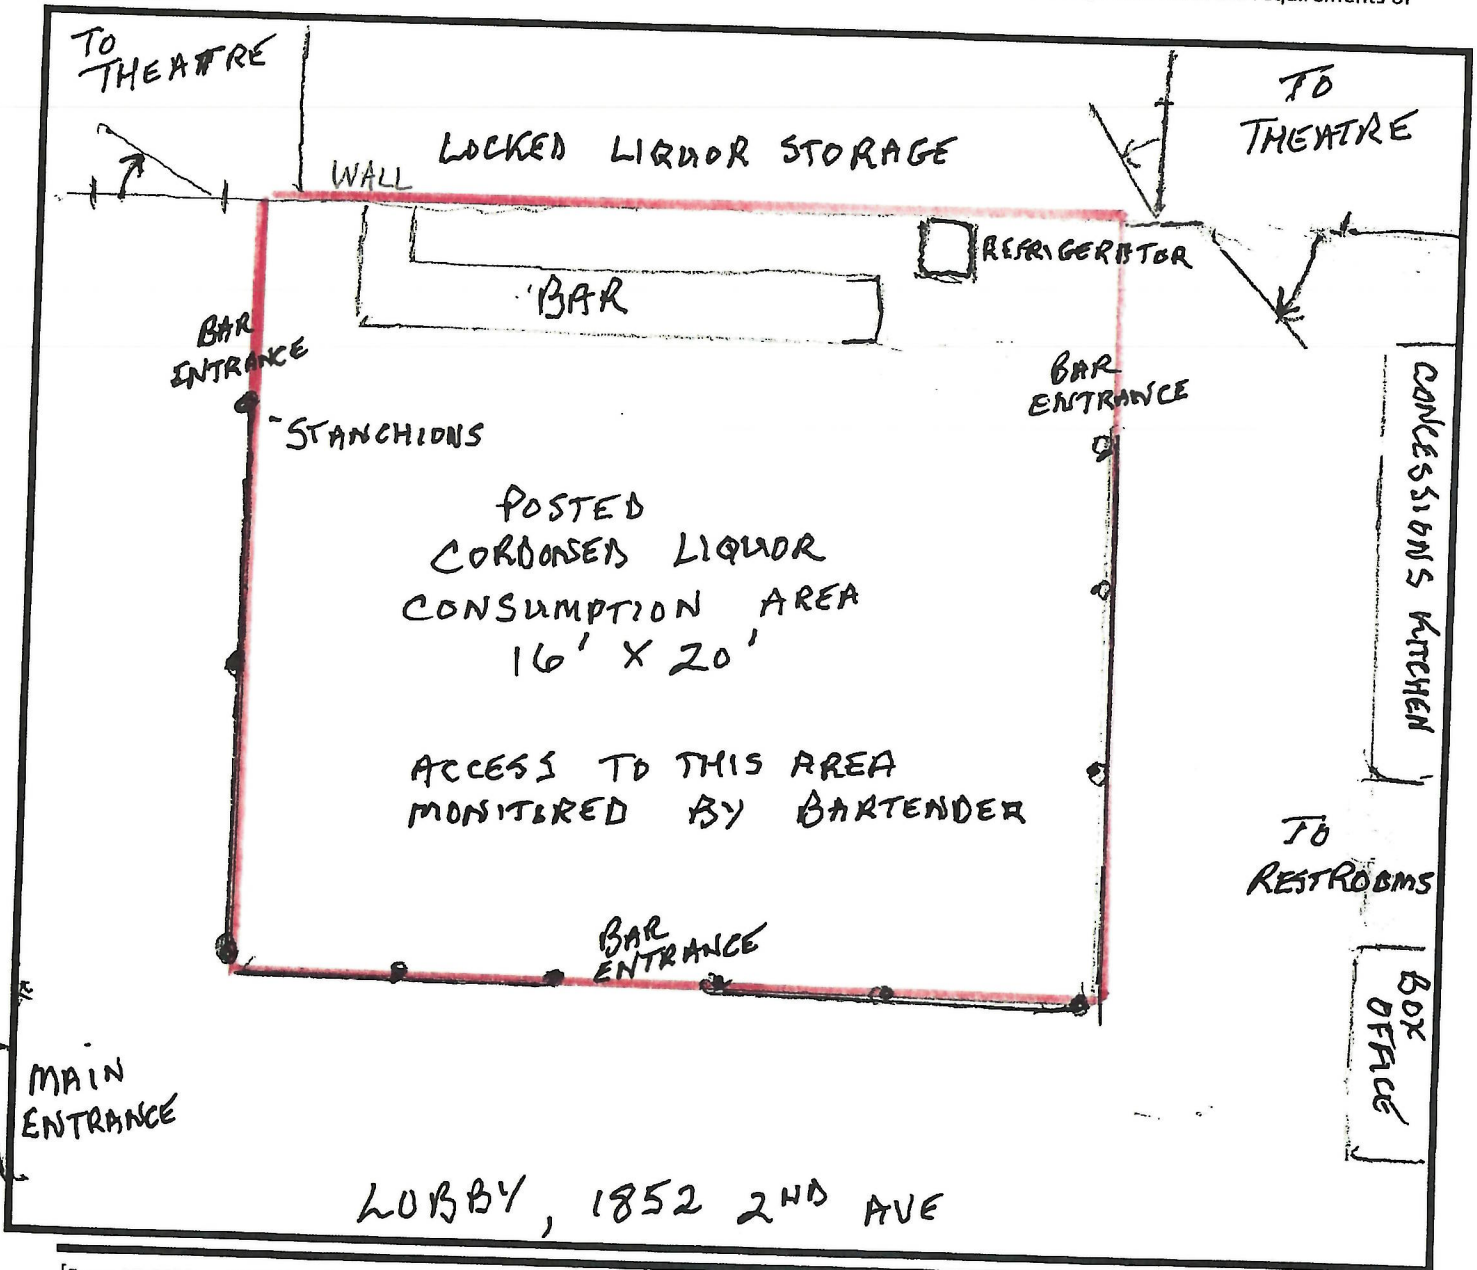 TO
THEATRE
TO
THEATRE
LOCKED LIQUOR STORAGE
WALL
REFRIGERATOR
BAR
BAR
ENTRANCE
BAR
ENTRANCE
STANCHIONS
CONCESSIONS KITCHEN
POSTED
CORDONED LIQUOR
CONSUMPTION AREA
16' X 20'
ACCESS TO THIS AREA
MONITORED BY BARTENDER
TO
RESTROOMS
BAR
ENTRANCE
BOX
OFFICE
MAIN
ENTRANCE
LOBBY, 1852 2ND AVE